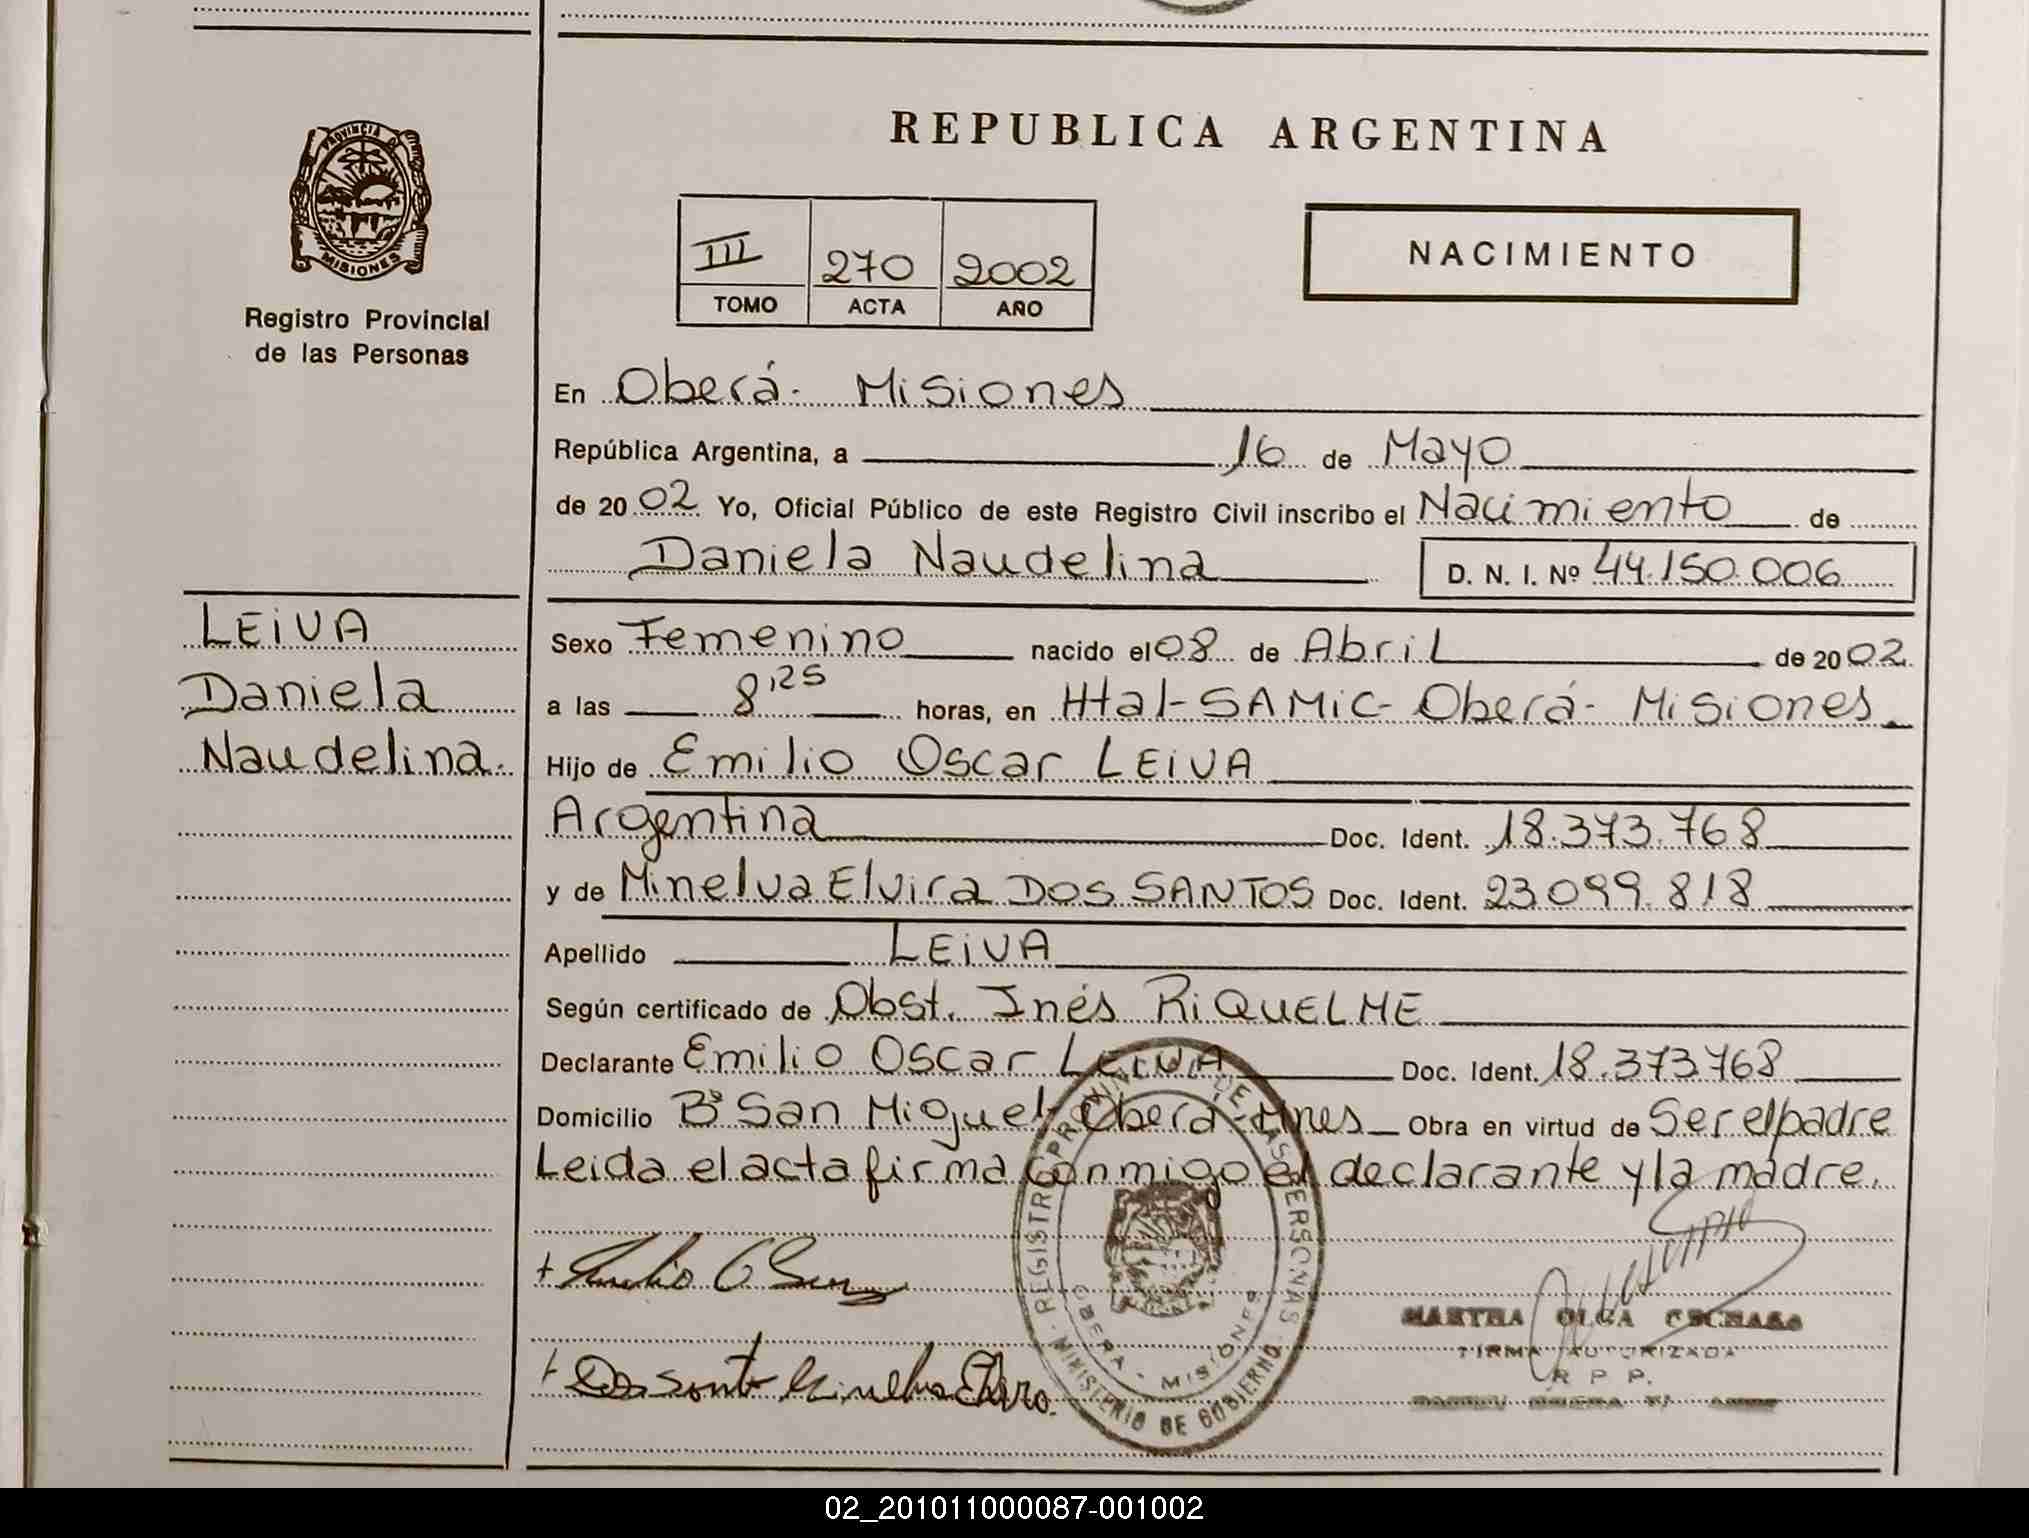 REPUBLICA ARGENTINA
PROVINCIA DE
MISIONES
Registro Provincial
de las Personas
III 270 2002
TOMO ACTA AÑO
NACIMIENTO
En Oberá- Misiones
República Argentina, a 16 de Mayo
de 2002 Yo, Oficial Público de este Registro Civil inscribo el Nacimiento de
Daniela Naudelina D. N. I. Nº 44.150.006
LEIVA
Daniela
Naudelina.
Sexo Femenino nacido el 08 de Abril de 2002
a las 8,25 horas, en Htal-SAMiC- Oberá- Misiones
Hijo de Emilio Oscar LEIVA
Argentina Doc. Ident. 18.373.768
y de Minelva Elvira DOS SANTOS Doc. Ident. 23.099.818
Apellido LEIVA
Según certificado de Obst. Inés RIQUELME
Declarante Emilio Oscar LEIVA Doc. Ident. 18.373.768
Domicilio Bº San Miguel- Oberá-Mnes Obra en virtud de Ser el padre
Leida el acta firma conmigo el declarante y la madre.
REGISTRO PROVINCIAL DE LAS PERSONAS
OBERA - MISIONES
MINISTERIO DE GOBIERNO
MARTHA OLGA
FIRMA AUTORIZADA
R P P.
02_201011000087-001002